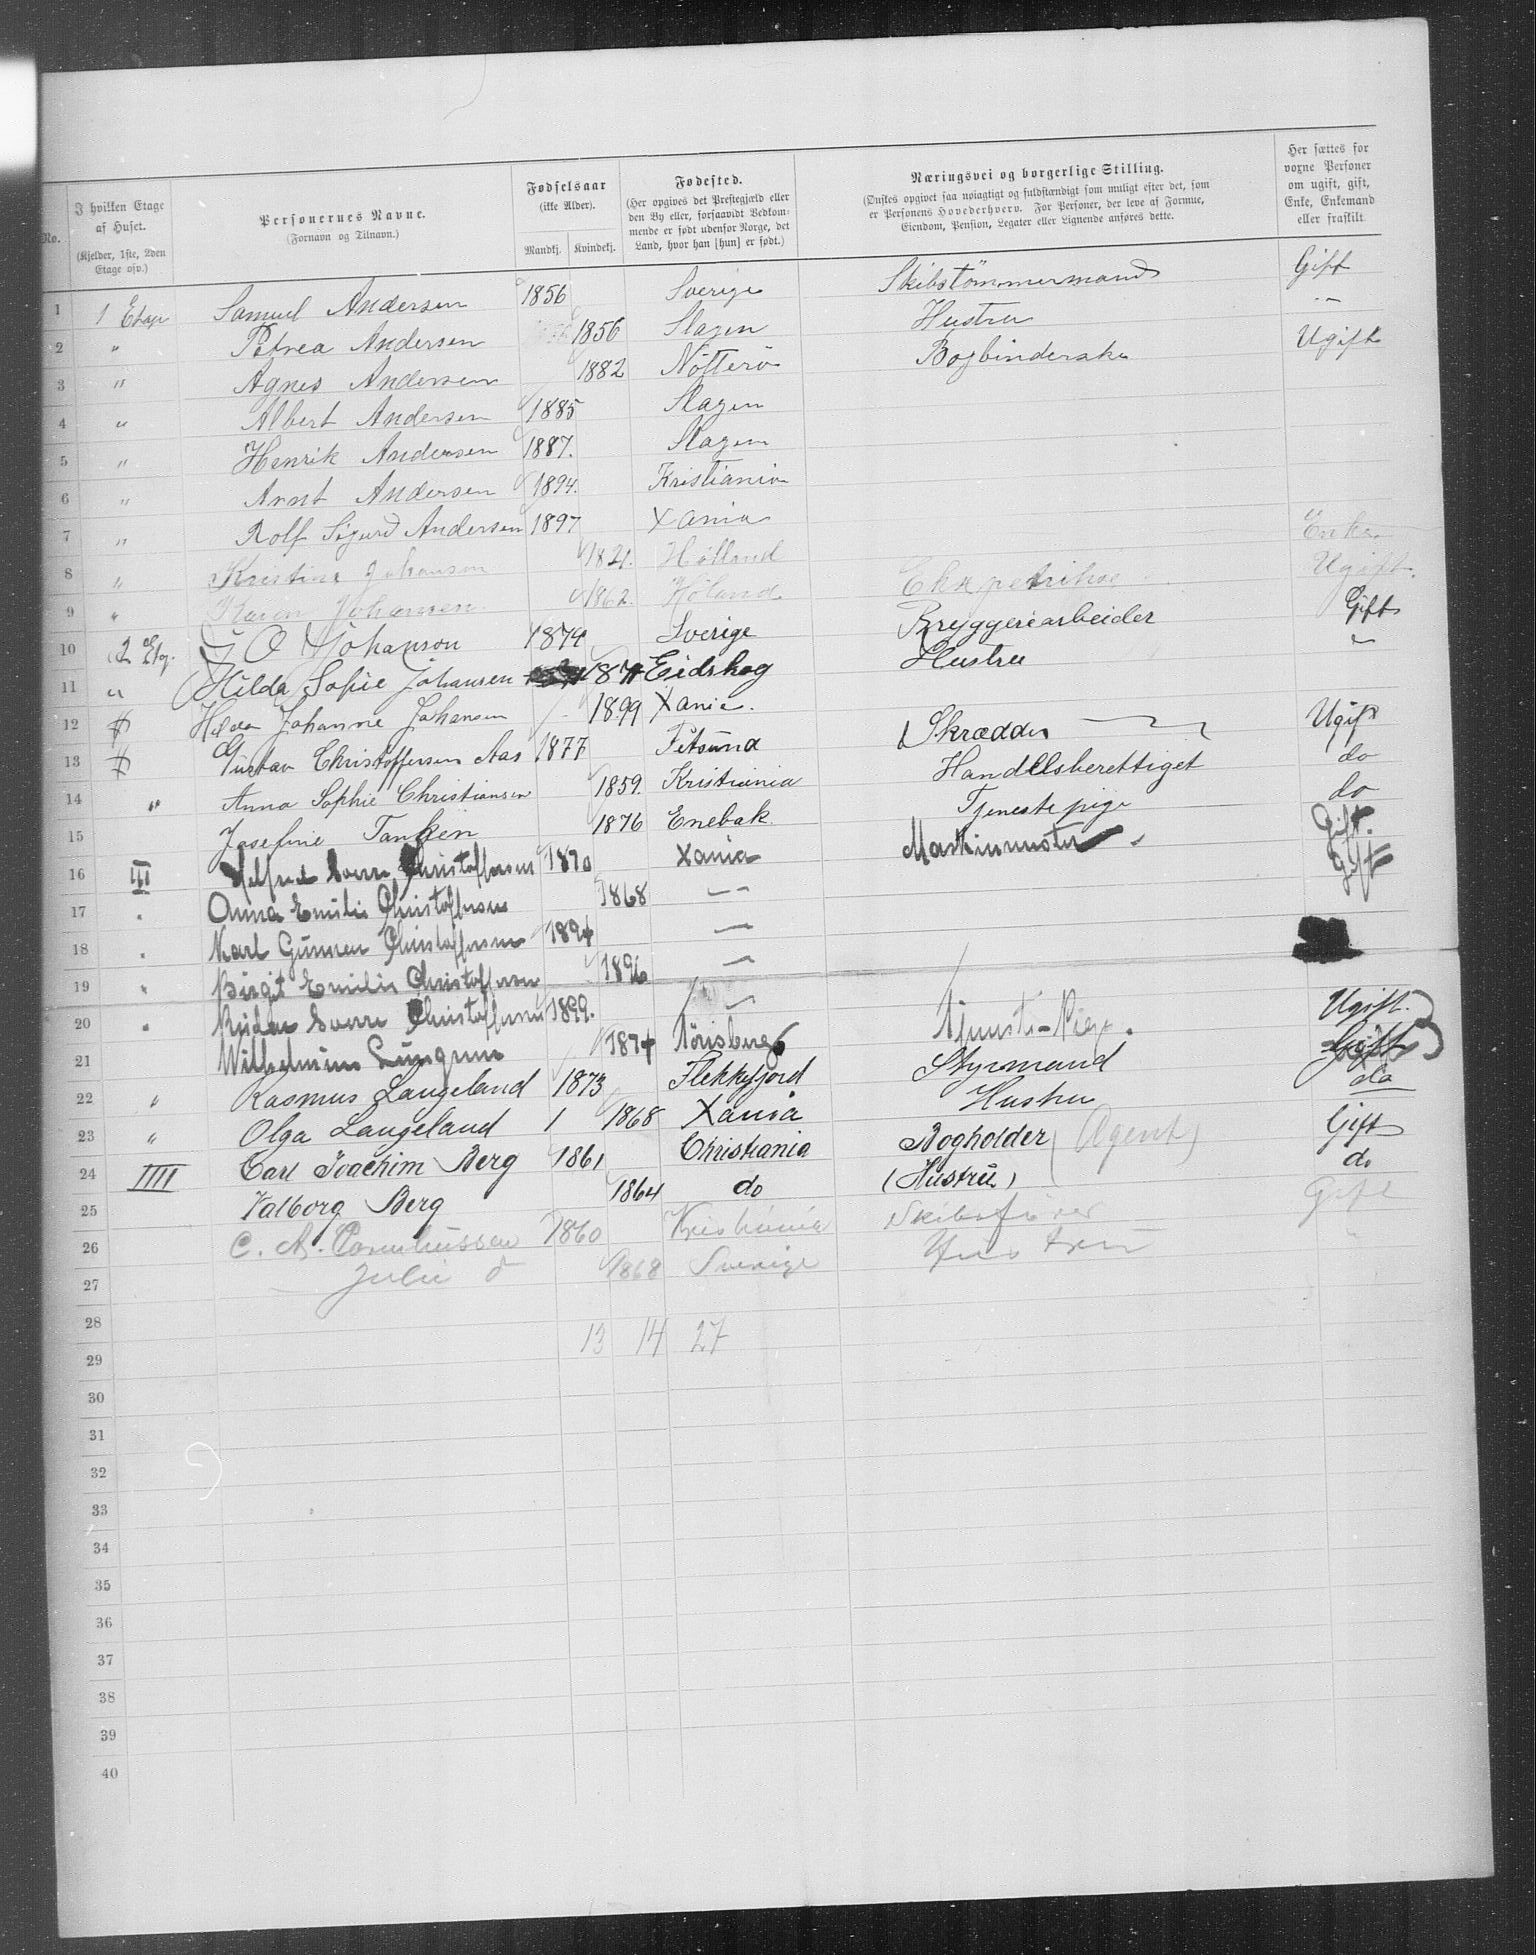 No. I hvilken Etage af Huset. (Kjelder, 1ste, 2den Etage osv.) Personernes Navne. (Fornavn og Tilnavn.) Fødselsaar (ikke Alder). Mandkj. Kvindekj. Fødested. (Her opgives det Prestegjæld eller den By eller, forsaavidt Vedkommende er født udenfor Norge, det Land, hvor han [hun] er født.) Næringsvei og borgerlige Stilling. (Ønskes opgivet saa nøiagtigt og fuldstændigt som muligt efter det, som er Personens Hovederhverv. For Personer, der leve af Formue, Eiendom, Pension, Legater eller Lignende anføres dette. Her sættes for voxne Personer om ugift, gift, Enke, Enkemand eller fraskilt
1 1 Etage Samuel Andersen 1856 Sverige Skibstømmermand Gift
2 " Petrea Andersen 1856 Slagen Hustru "
3 " Agnes Andersen 1882 Nötterö Bogbinderske Ugift
4 " Albert Andersen 1885 Slagen
5 " Henrik Andersen 1887. Slagen
6 " Arnt Andersen 1894. Kristiania
7 " Rolf Sigurd Andersen 1897 Xania
8 " Kristine Johansen 1821. Hölland Enke
9 " Karen Johansen 1862. Höland Ugift.
10 2 Etg. J O Johanson 1874 Sverige Bryggeriarbeider Gift
11 " Hilda Sofie Johansen 1874 Eidskog Hustru "
12 Helga Johanne Johansen 1899 Xania.
13 Gustav Christoffersen Aas 1877 Fetsund Skrædder Ugift
14 " Anna Sophie Christiansen 1859. Kristiania Handelsberettiget do
15 Josefine Tanken 1876 Enebak Tjenestepige do
16 III Christoffersen 1870 Xania Maskinmester Gift.
17 " Anna Emilie Christoffersen 1868 — Gift
18 " Karl Gunnar Christoffersen 1894 —
19 " Birgit Emilie Christoffersen 1896 —
20 " Christoffersen 1899. —
21 Wilhelmine 1874 Tjeneste-Pige. Ugift.
22 " Rasmus Langeland 1873 Flekkefjord Styrmand Gift
23 " Olga Langeland 1 1868 Xania Hustru do
24 IIII Carl Joachim Berg 1861 Christiania Bogholder (Agent) Gift
25 Valborg Berg 1864 do (Hustru) do
26 C. A. Corneliussen 1860 Kristiania Skibsfører Gift
27 Julie d 1868 Sverige Hustru "
28 13 14 27
29
30
31
32
33
34
35
36
37
38
39
40